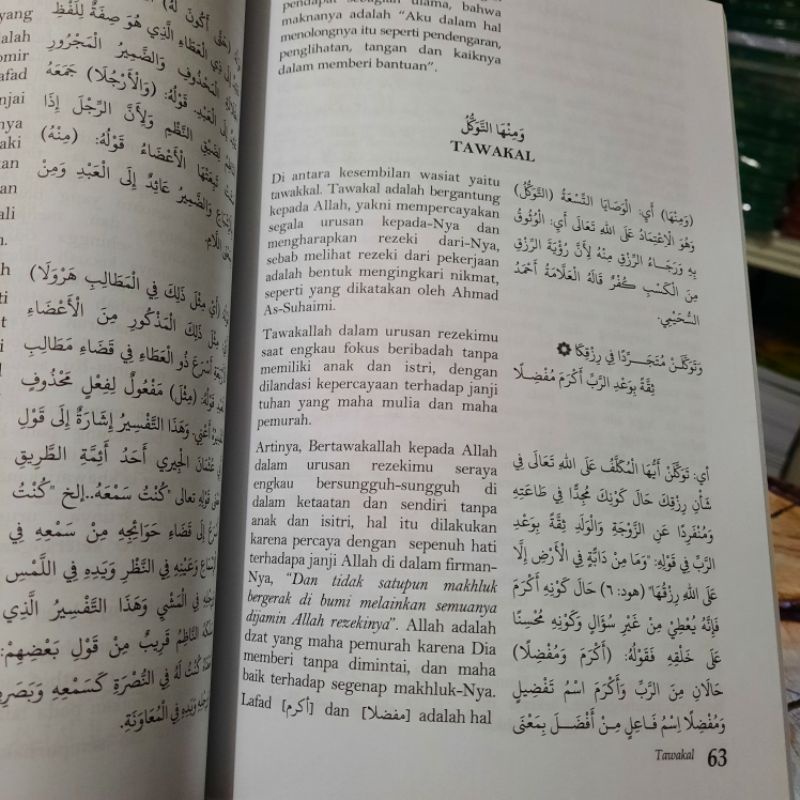 yang
alah
omir
afad
njai
nya
aki
tan
an
ali
n.
(حَقَّ أَكُونَ لَهُ)
ذِي الْعَطَاءِ الَّذِي هُوَ صِفَةٌ لِلَّفْظِ
الْمَحْذُوفِ وَالضَّمِيرُ الْمَجْرُورِ
إِلَى الْعَبْدِ. قَوْلُهُ: (وَالْأَرْجُلَا) جَمَعَهُ
لِضِيقِ النَّظْمِ وَلِأَنَّ الرِّجْلَ إِذَا
تَبِعَتْهَا الْأَعْضَاءُ قَوْلُهُ: (مِنْهُ)
وَالضَّمِيرُ عَائِدٌ إِلَى الْعَبْدِ وَمِنْ
اللَّامِ.
(أَيْ مِثْلَ ذَلِكَ فِي الْمَطَالِبِ هَرْوَلَا)
ذَلِكَ الْمَذْكُورِ مِنَ الْأَعْضَاءِ
أَسْرَعَ ذُو الْعَطَاءِ فِي قَضَاءِ مَطَالِبِ
قَوْلُهُ: (مِثْلَ) مَفْعُولٌ لِفِعْلٍ مَحْذُوفٍ
أَعْنِي. وَهَذَا التَّفْسِيرُ إِشَارَةٌ إِلَى قَوْلِ
عُثْمَانَ الْحِيرِي أَحَدُ أَئِمَّةِ الطَّرِيقِ
قَوْلِهِ تعالى "كُنْتُ سَمْعَهُ..إلخ "كُنْتُ
إِلَى قَضَاءِ حَوَائِجِهِ مِنْ سَمْعِهِ فِي
وَعَيْنِهِ فِي النَّظْرِ وَيَدِهِ فِي اللَّمْسِ
فِي الْمَشْيِ وَهَذَا التَّفْسِيرُ الَّذِي
النَّاظِمُ قَرِيبٌ مِنْ قَوْلِ بَعْضِهِمْ:
كُنْتُ لَهُ فِي النُّصْرَةِ كَسَمْعِهِ وَبَصَرِهِ
وَيَدِهِ فِي الْمُعَاوَنَةِ.
pendapat sebagian ulama, bahwa
maknanya adalah “Aku dalam hal
menolongnya itu seperti pendengaran,
penglihatan, tangan dan kaiknya
dalam memberi bantuan”.
وَمِنْهَا التَّوَكُّلُ
TAWAKAL
Di antara kesembilan wasiat yaitu
tawakkal. Tawakal adalah bergantung
kepada Allah, yakni mempercayakan
segala urusan kepada-Nya dan
mengharapkan rezeki dari-Nya,
sebab melihat rezeki dari pekerjaan
adalah bentuk mengingkari nikmat,
seperti yang dikatakan oleh Ahmad
As-Suhaimi.
(وَمِنْهَا) أَي: الْوَصَايَا التِّسْعَةُ (التَّوَكُّلُ)
وَهُوَ الْاِعْتِمَادُ عَلَى اللهِ تَعَالَى أَيْ: الْوُثُوقُ
بِهِ وَرَجَاءُ الرِّزْقِ مِنْهُ لِأَنَّ رُؤْيَةَ الرِّزْقِ
مِنَ الْكَسْبِ كُفْرٌ قَالَهُ الْعَلَّامَةُ أَحْمَدُ
السُّحَيْمِي.
Tawakallah dalam urusan rezekimu
saat engkau fokus beribadah tanpa
memiliki anak dan istri, dengan
dilandasi kepercayaan terhadap janji
tuhan yang maha mulia dan maha
pemurah.
وَتَوَكَّلَنْ مُتَجَـرِّدًا فِي رِزْقِكَا ۞
ثِقَةً بِوَعْدِ الرَّبِّ أَكْرَمَ مُفْضِـلًا
Artinya, Bertawakallah kepada Allah
dalam urusan rezekimu seraya
engkau bersungguh-sungguh di
dalam ketaatan dan sendiri tanpa
anak dan isitri, hal itu dilakukan
karena percaya dengan sepenuh hati
terhadapa janji Allah di dalam firman-
Nya, “Dan tidak satupun makhluk
bergerak di bumi melainkan semuanya
dijamin Allah rezekinya”. Allah adalah
dzat yang maha pemurah karena Dia
memberi tanpa dimintai, dan maha
baik terhadap segenap makhluk-Nya.
Lafad [أكرم] dan [مفضلا] adalah hal
أي: تَوَكَّلَنْ أَيُّهَا الْمُكَلَّفُ عَلَى اللهِ تَعَالَى فِي
شَأْنِ رِزْقِكَ حَالَ كَوْنِكَ مُجِدًّا فِي طَاعَتِهِ
وَمُنْفَرِدًا عَنِ الزَّوْجَةِ وَالْوَلَدِ ثِقَةً بِوَعْدِ
الرَّبِّ فِي قَوْلِهِ: "وَمَا مِنْ دَابَّةٍ فِي الْأَرْضِ إِلَّا
عَلَى اللهِ رِزْقُهَا" (هود: ٦) حَالَ كَوْنِهِ أَكْرَمَ
فَإِنَّهُ يُعْطِيْ مِنْ غَيْرِ سُؤَالٍ وَكَوْنِهِ مُحْسِنًا
عَلَى خَلْقِهِ فَقَوْلُهُ: (أَكْرَمَ وَمُفْضِلًا)
حَالَانِ مِنَ الرَّبِّ وَأَكْرَمَ اسْمُ تَفْضِيلٍ
وَمُفْضِلًا اِسْمُ فَاعِلٍ مِنْ أَفْضَـلَ بِمَعْنَى
Tawakal 63